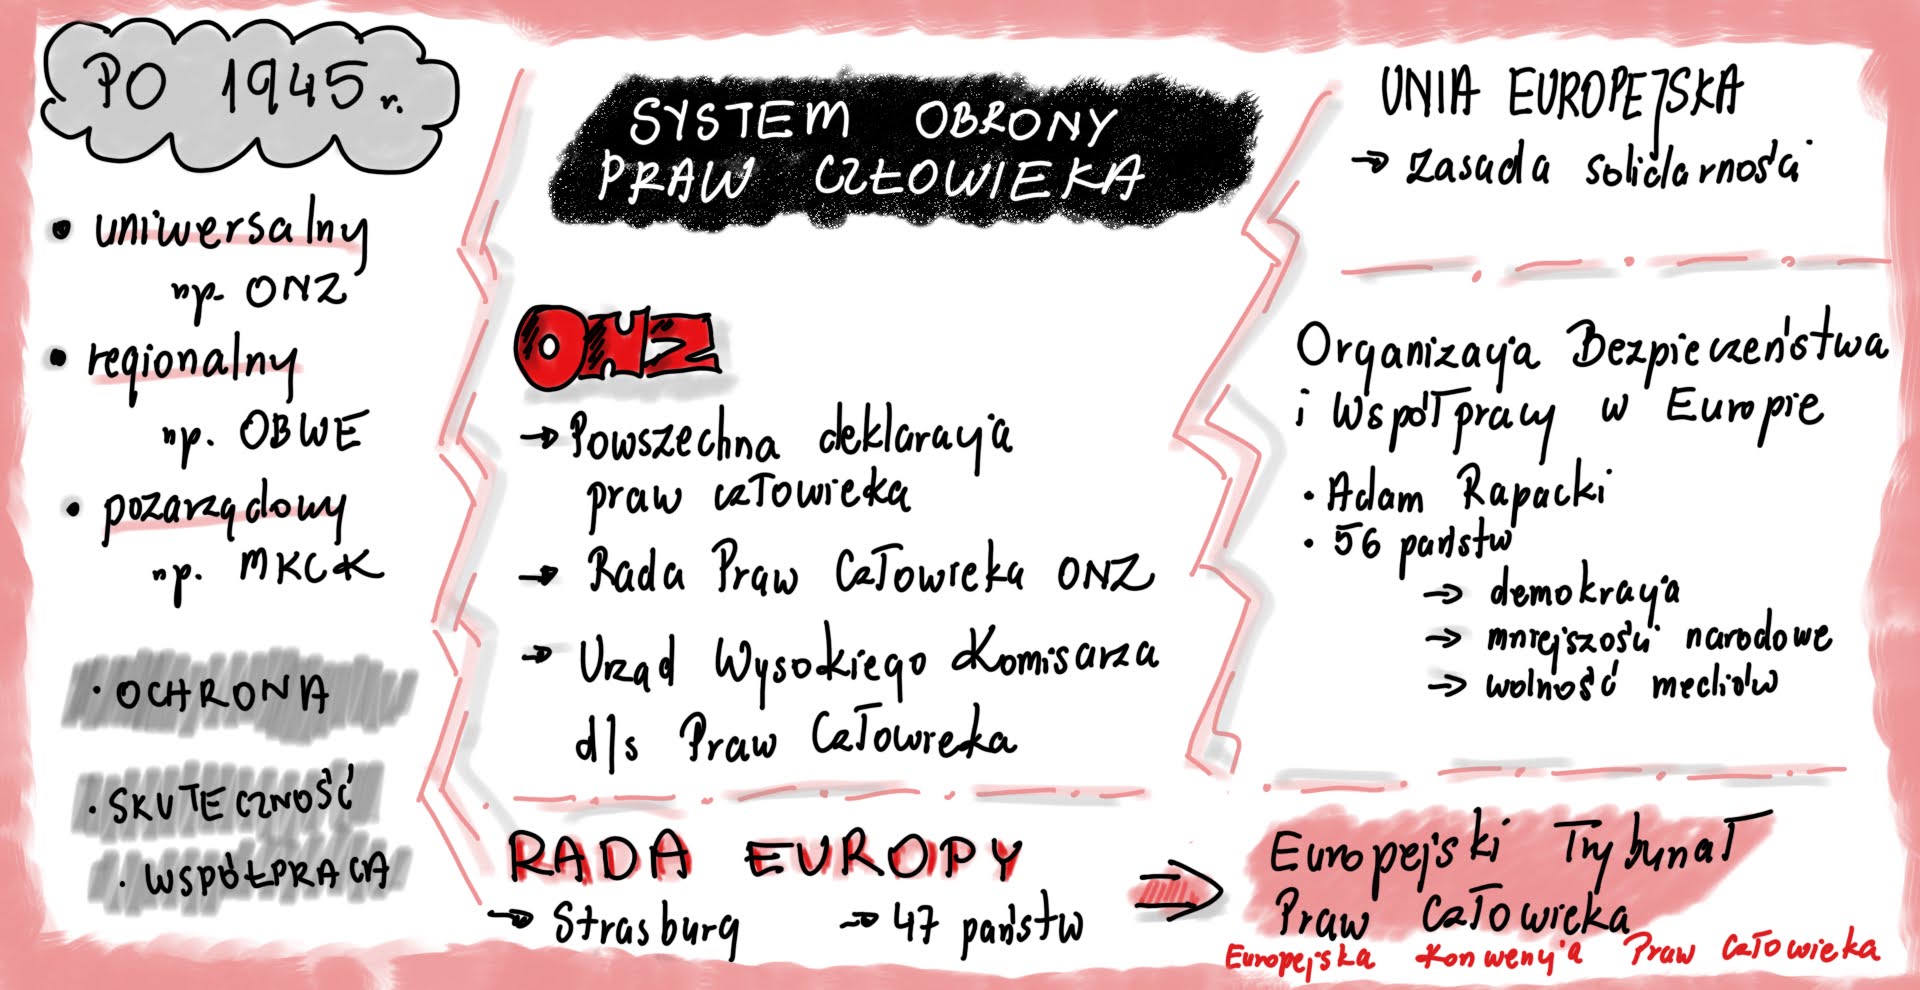 PO 1945 r.
• uniwersalny
np. ONZ
• regionalny
np. OBWE
• pozarządowy
np. MKCK
• OCHRONA
• SKUTECZNOŚĆ
• WSPÓŁPRACA
SYSTEM OBRONY
PRAW CZŁOWIEKA
ONZ
→ Powszechna deklaracja
praw człowieka
→ Rada Praw Człowieka ONZ
→ Urząd Wysokiego Komisarza
d/s Praw Człowieka
RADA EUROPY
→ Strasburg → 47 państw
UNIA EUROPEJSKA
→ zasada solidarności
Organizacja Bezpieczeństwa
i Współpracy w Europie
• Adam Rapacki
• 56 państw
→ demokracja
→ mniejszości narodowe
→ wolność mediów
Europejski Trybunał
Praw Człowieka
Europejska Konwencja Praw Człowieka